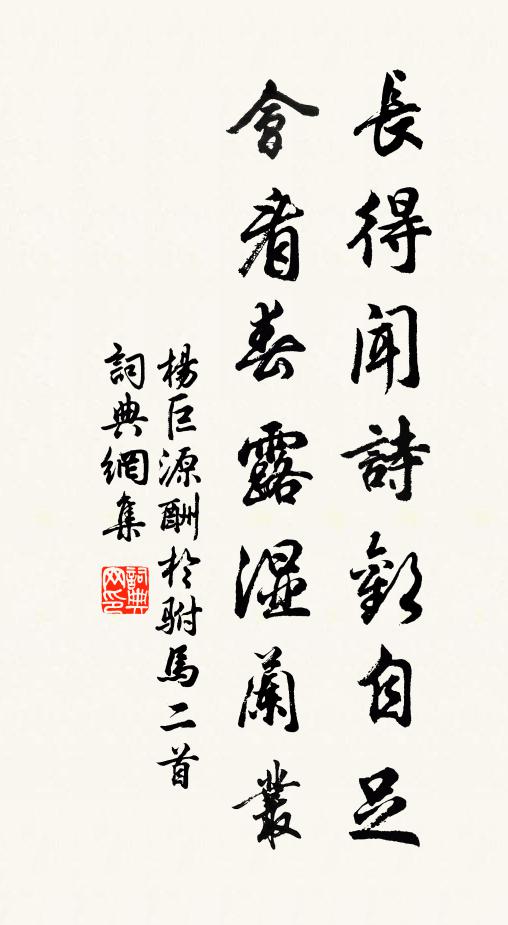 長得聞詩歡自足
會看春露濕蘭叢
楊巨源酬於駙馬二首
詞典網集
詞典网印